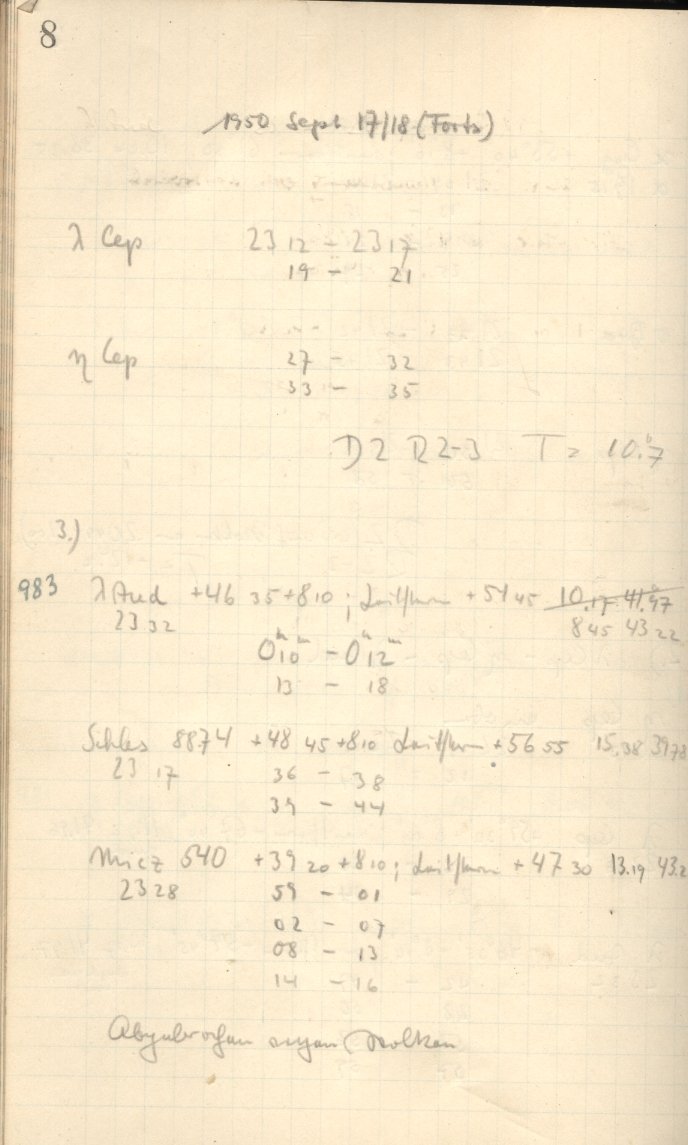 8
1950 Sept 17/18 (Forts)
λ Cep 23 12 – 23 17
19 – 21
η Cep 27 – 32
33 – 35
D2 R2-3 T = 10.°7
3.)
983 λ And +46 35 +8 10 ; Leitstern +54 45 10.17 41.97
23 32 8 45 43 22
0 h 10 m – 0 h 12 m
13 – 18
Schles 8874 +48 45 +8 10 Leitstern +56 55 15.38 39 78
23 17 36 – 38
39 – 44
Micz 540 +39 20 +8 10 ; Leitstern +47 30 13.19 43.2
23 28 59 – 01
02 – 07
08 – 13
14 – 16
Abgebrochen wegen Wolken